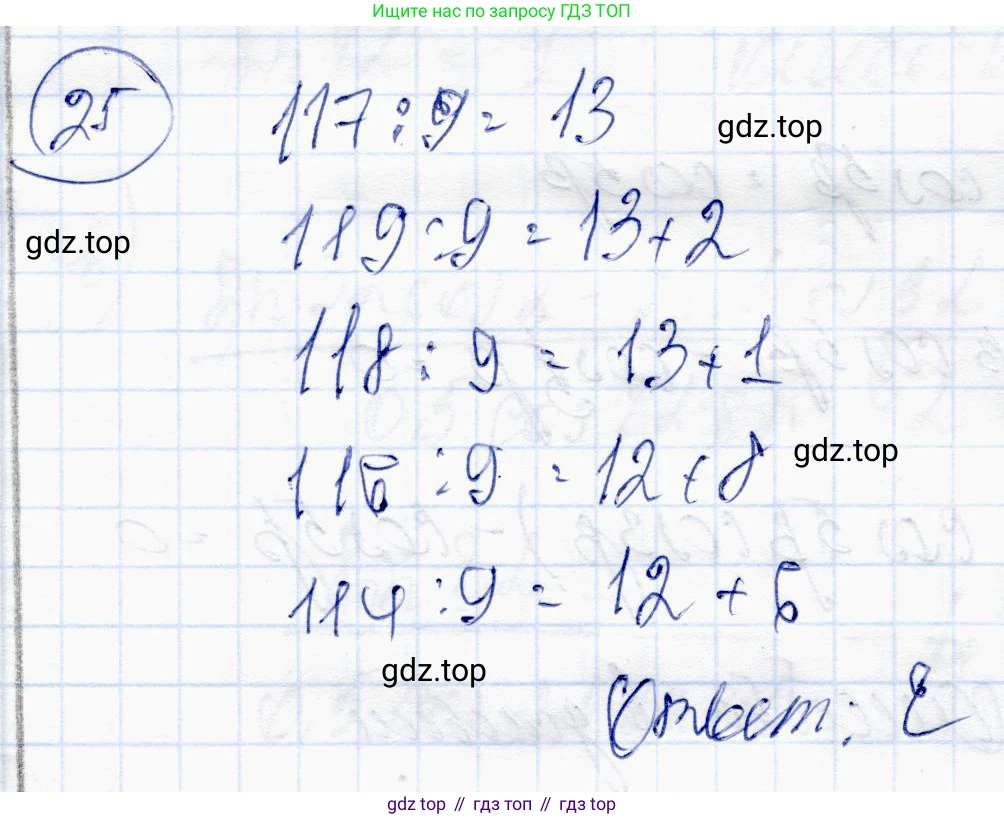 Ищите нас по запросу ГДЗ ТОП
25
117 : 9 = 13
gdz.top
119 : 9 = 13 + 2
gdz.top
118 : 9 = 13 + 1
116 : 9 = 12 + 8
gdz.top
114 : 9 = 12 + 6
gdz.top
Ответ: E
gdz top // гдз топ // гдз top